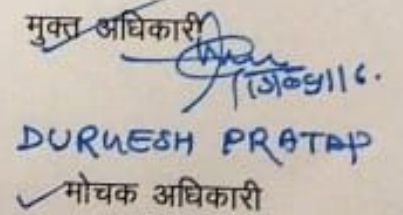 मुक्त अधिकारी
DURGESH PRATAP
मोचक अधिकारी